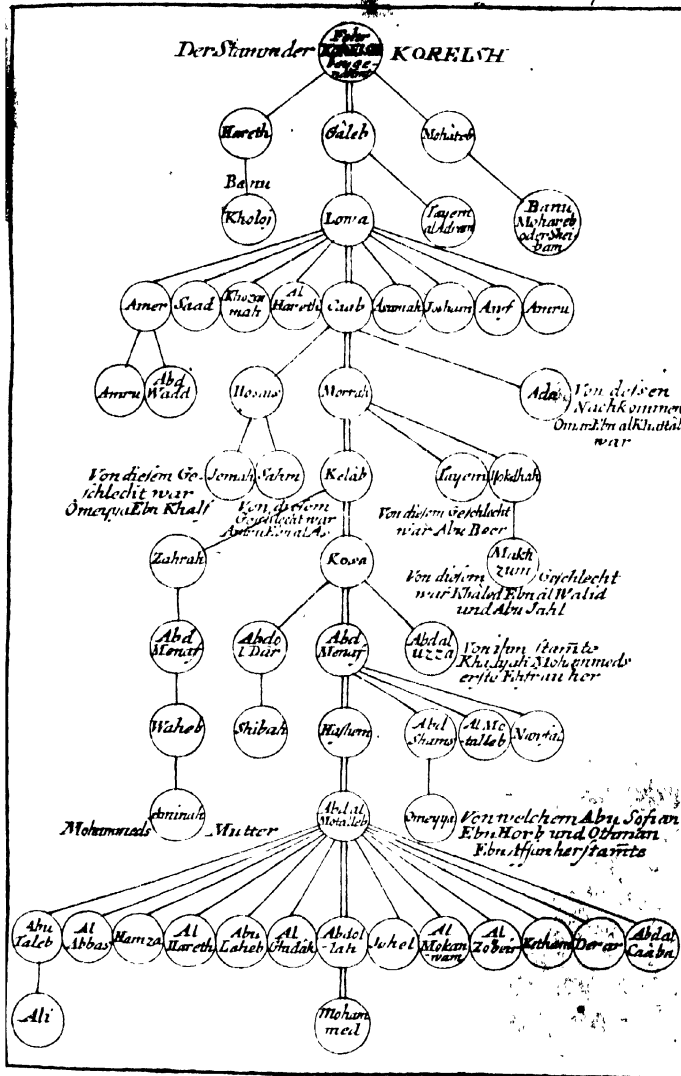 Der Stamm der KORELSH
Fehr
KORELSH
beyge-
nahmt
Hareth
Galeb
Mohareb
Banu
Kholoj
Lowa
Tayem
al Adram
Banu
Mohareb
oder Shei-
bam
Amer
Saad
Khoza
mah
Al
Hareth
Caab
Asamah
Josham
Awf
Amru
Amru
Abd
Wadd
Hosais
Morrah
Ada
Von dessen
Nachkommen
Omar Ebn al Khattab
war
Von diesem Ge-
schlecht war
Omeyya Ebn Khalf
Jomah
Sahm
Kelâb
Tayem
Von diesem
Geschlecht war
Amru Ebn al As
Von diesem Geschlecht
war Abu Becr
Zahrah
Kosa
Makh
zum
Von diesem Geschlecht
war Khâled Ebn al Walid
und Abu Jahl
Abd
Menaf
Abdo
l Dâr
Abd
Menaf
Abdal
uzza
Von ihm stam̄te
Khadijah Mohammeds
erste Ehfrau her
Waheb
Shibah
Hashem
Abd
Shams
Al Mo-
talleb
Nawfal
Mohammeds Mutter
Aminah
Abd al
Motalleb
Omeyya
Von welchem Abu Sofian
Ebn Horb und Othman
Ebn Affan herstam̄te
Abu
Taleb
Al
Abbas
Hamza
Al
Hareth
Abu
Laheb
Al
Ghidâk
Abdol
-lah
Johel
Al
Mokaw
wam
Al
Zobeir
Ketham
Derar
Abdal
Caâba
Ali
Moham
med